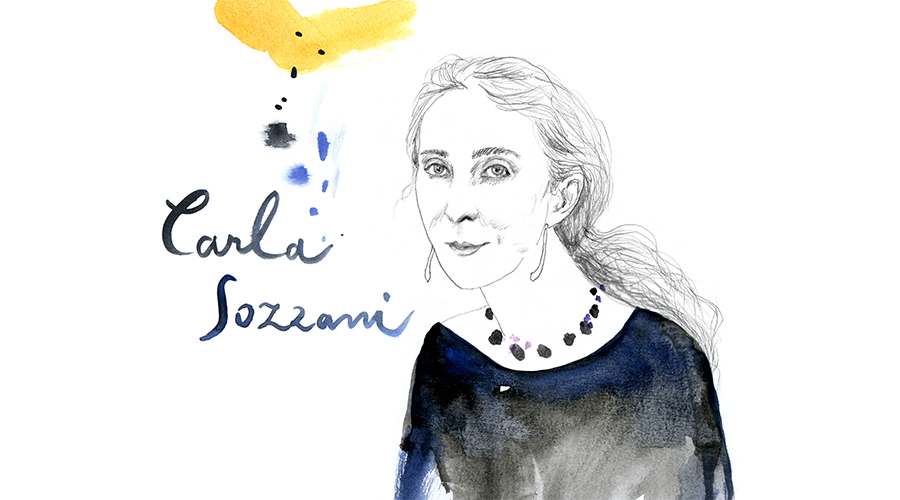 Carla
Sozzani